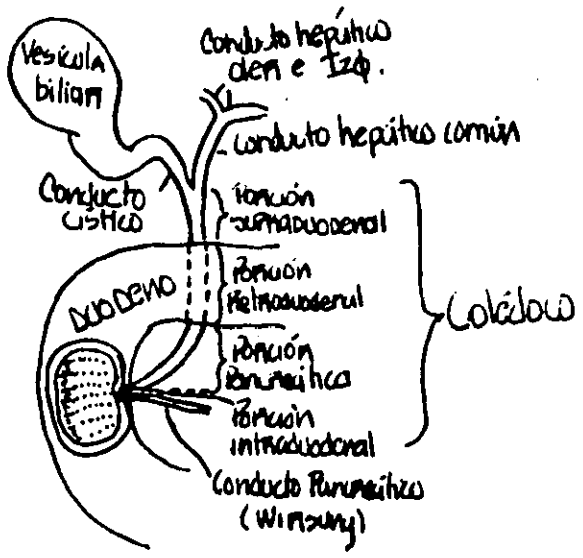 Vesícula
biliar
Conducto hepático
der e Izq.
Conducto hepático común
Conducto
cístico
Porción
supraduodenal
DUODENO
Porción
Retroduodenal
Colédoco
Porción
Pancreática
Porción
intraduodenal
Conducto Pancreático
(Wirsung)